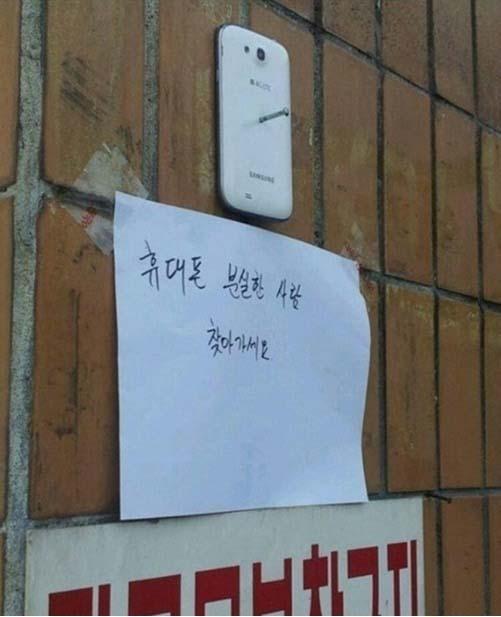 SAMSUNG
휴대폰 분실한 사람
찾아가세요